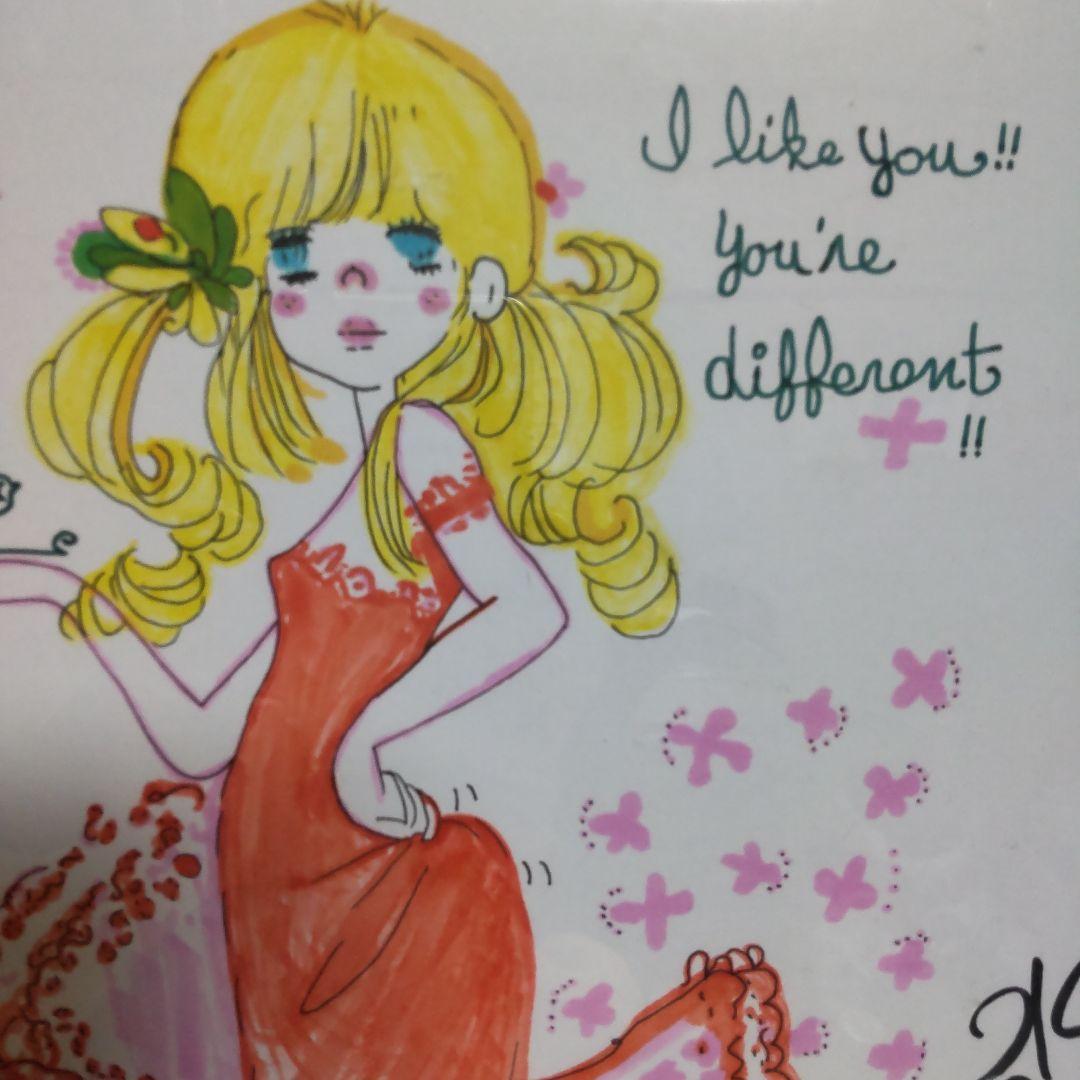 I like you!!
you're
different
!!